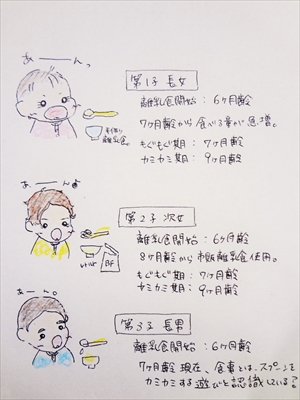 あーーんっ
第1子 長女
離乳食開始：6ヶ月齢
7ヶ月齢から食べる量が急増。
手作り
離乳食。
もぐもぐ期：7ヶ月齢
カミカミ期：9ヶ月齢
あーーん♪
第2子 次女
離乳食開始：6ヶ月齢
8ヶ月齢から市販離乳食使用。
レトルト
BF
もぐもぐ期：7ヶ月齢
カミカミ期：9ヶ月齢
あーん。
第3子 長男
離乳食開始：6ヶ月齢
7ヶ月齢現在、食事とは、スプーンを
カミカミする遊びと認識している？